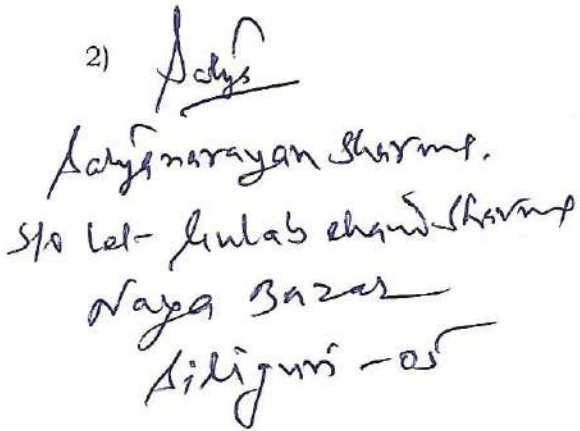 2) Satya
Satyanarayan Sharma.
S/o Let- Gulab chand Sharma
Naya Bazar
Siliguri - 05